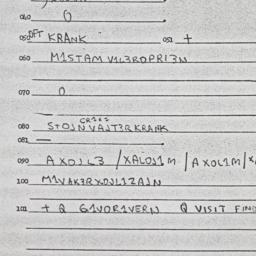 040 0
050 DFT KRANK 051 +
060 M1STAM V1L3ROPRI3N
070 0
080 STOJN VAJT3R KRANK
081 —
090 AXOJL3 /XALOJ1M /AXOL1M/X
100 M1VAK3RXOJL1ZAJN
101 + Q G1VOR1VERN Q VISIT FIND